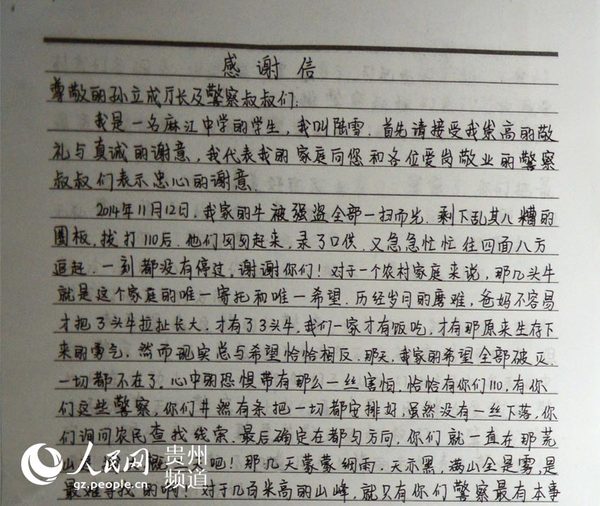 感谢信
尊敬的孙立成厅长及警察叔叔们:
我是一名麻江中学的学生,我叫陆雪.首先请接受我崇高的敬
礼与真诚的谢意,我代表我的家庭向您和各位爱岗敬业的警察
叔叔们表示忠心的谢意.
2014年11月12日,我家的牛被强盗全部一扫而光.剩下乱其八糟的
圈板,拨打110后.他们匆匆赶来,录了口供.又急急忙忙往四面八方
追赶.一刻都没有停过,谢谢你们!对于一个农村家庭来说,那几头牛
就是这个家庭的唯一寄托和唯一希望.历经岁月的磨难,爸妈不容易
才把3头牛拉扯长大.才有了3头牛,我们一家才有饭吃,才有那原来生存下
来的勇气.然而现实总与希望恰恰相反.那天,我家的希望全部破灭.
一切都不在了.心中的恐惧带有那么一丝害怕.恰恰有你们110,有你
们这些警察,你们井然有条把一切都安排好,虽然没有一丝下落.你
们询问农民查找线索.最后确定在都匀方向,你们就一直在那荒
山 吧!那几天蒙蒙细雨.天亦黑,满山全是雾,是
最难寻找的啊!对于几百米高的山峰,就只有你们警察最有本事
人民网 贵州频道
gz.people.cn